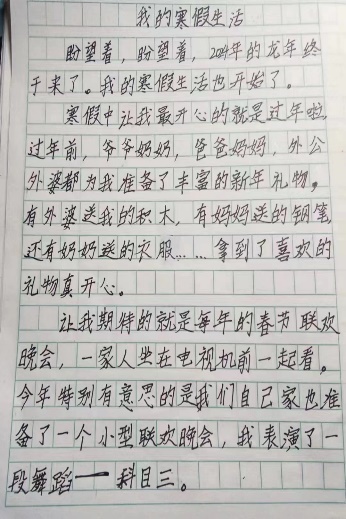 我的寒假生活
盼望着，盼望着，2024年的龙年终
于来了。我的寒假生活也开始了。
寒假中让我最开心的就是过年啦，
过年前，爷爷奶奶，爸爸妈妈，外公
外婆都为我准备了丰富的新年礼物。
有外婆送我的积木，有妈妈送的钢笔
还有奶奶送的衣服……拿到了喜欢的
礼物真开心。
让我期待的就是每年的春节联欢
晚会，一家人坐在电视机前一起看。
今年特别有意思的是我们自己家也准
备了一个小型联欢晚会，我表演了一
段舞蹈——科目三。